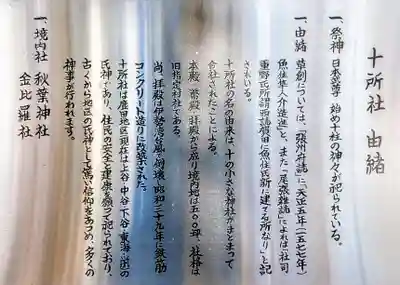 十所社 由緒
一、祭神 日本武尊 始め十柱の神々が祀られている。
一、由緒 草創については、「張州府誌」に「天正五年(一五七七年)
魚住隼人介造進」と、また「尾張雑誌」によれば「社司
重野氏所謂西端廣田に魚住氏新に建てる所なり」と記
されいる。
十所社の名の由来は、十の小さな神社がまとまって
合社されたことによる。
本殿、幣殿、拝殿から成り境内地は五〇〇坪、社格は
旧指定村社である。
尚、拝殿は伊勢湾台風で倒壊、昭和三十九年に鉄筋
コンクリート造りに改築された。
十所社は廣田地区(現在は上谷、中谷、下谷、東海、洪)の
氏神であり、住民の安全と健康を願って祀られており、
古くから地区の氏神として篤い信仰をあつめ、多くの
神事が行われます。
一、境内社 秋葉神社
金比羅社